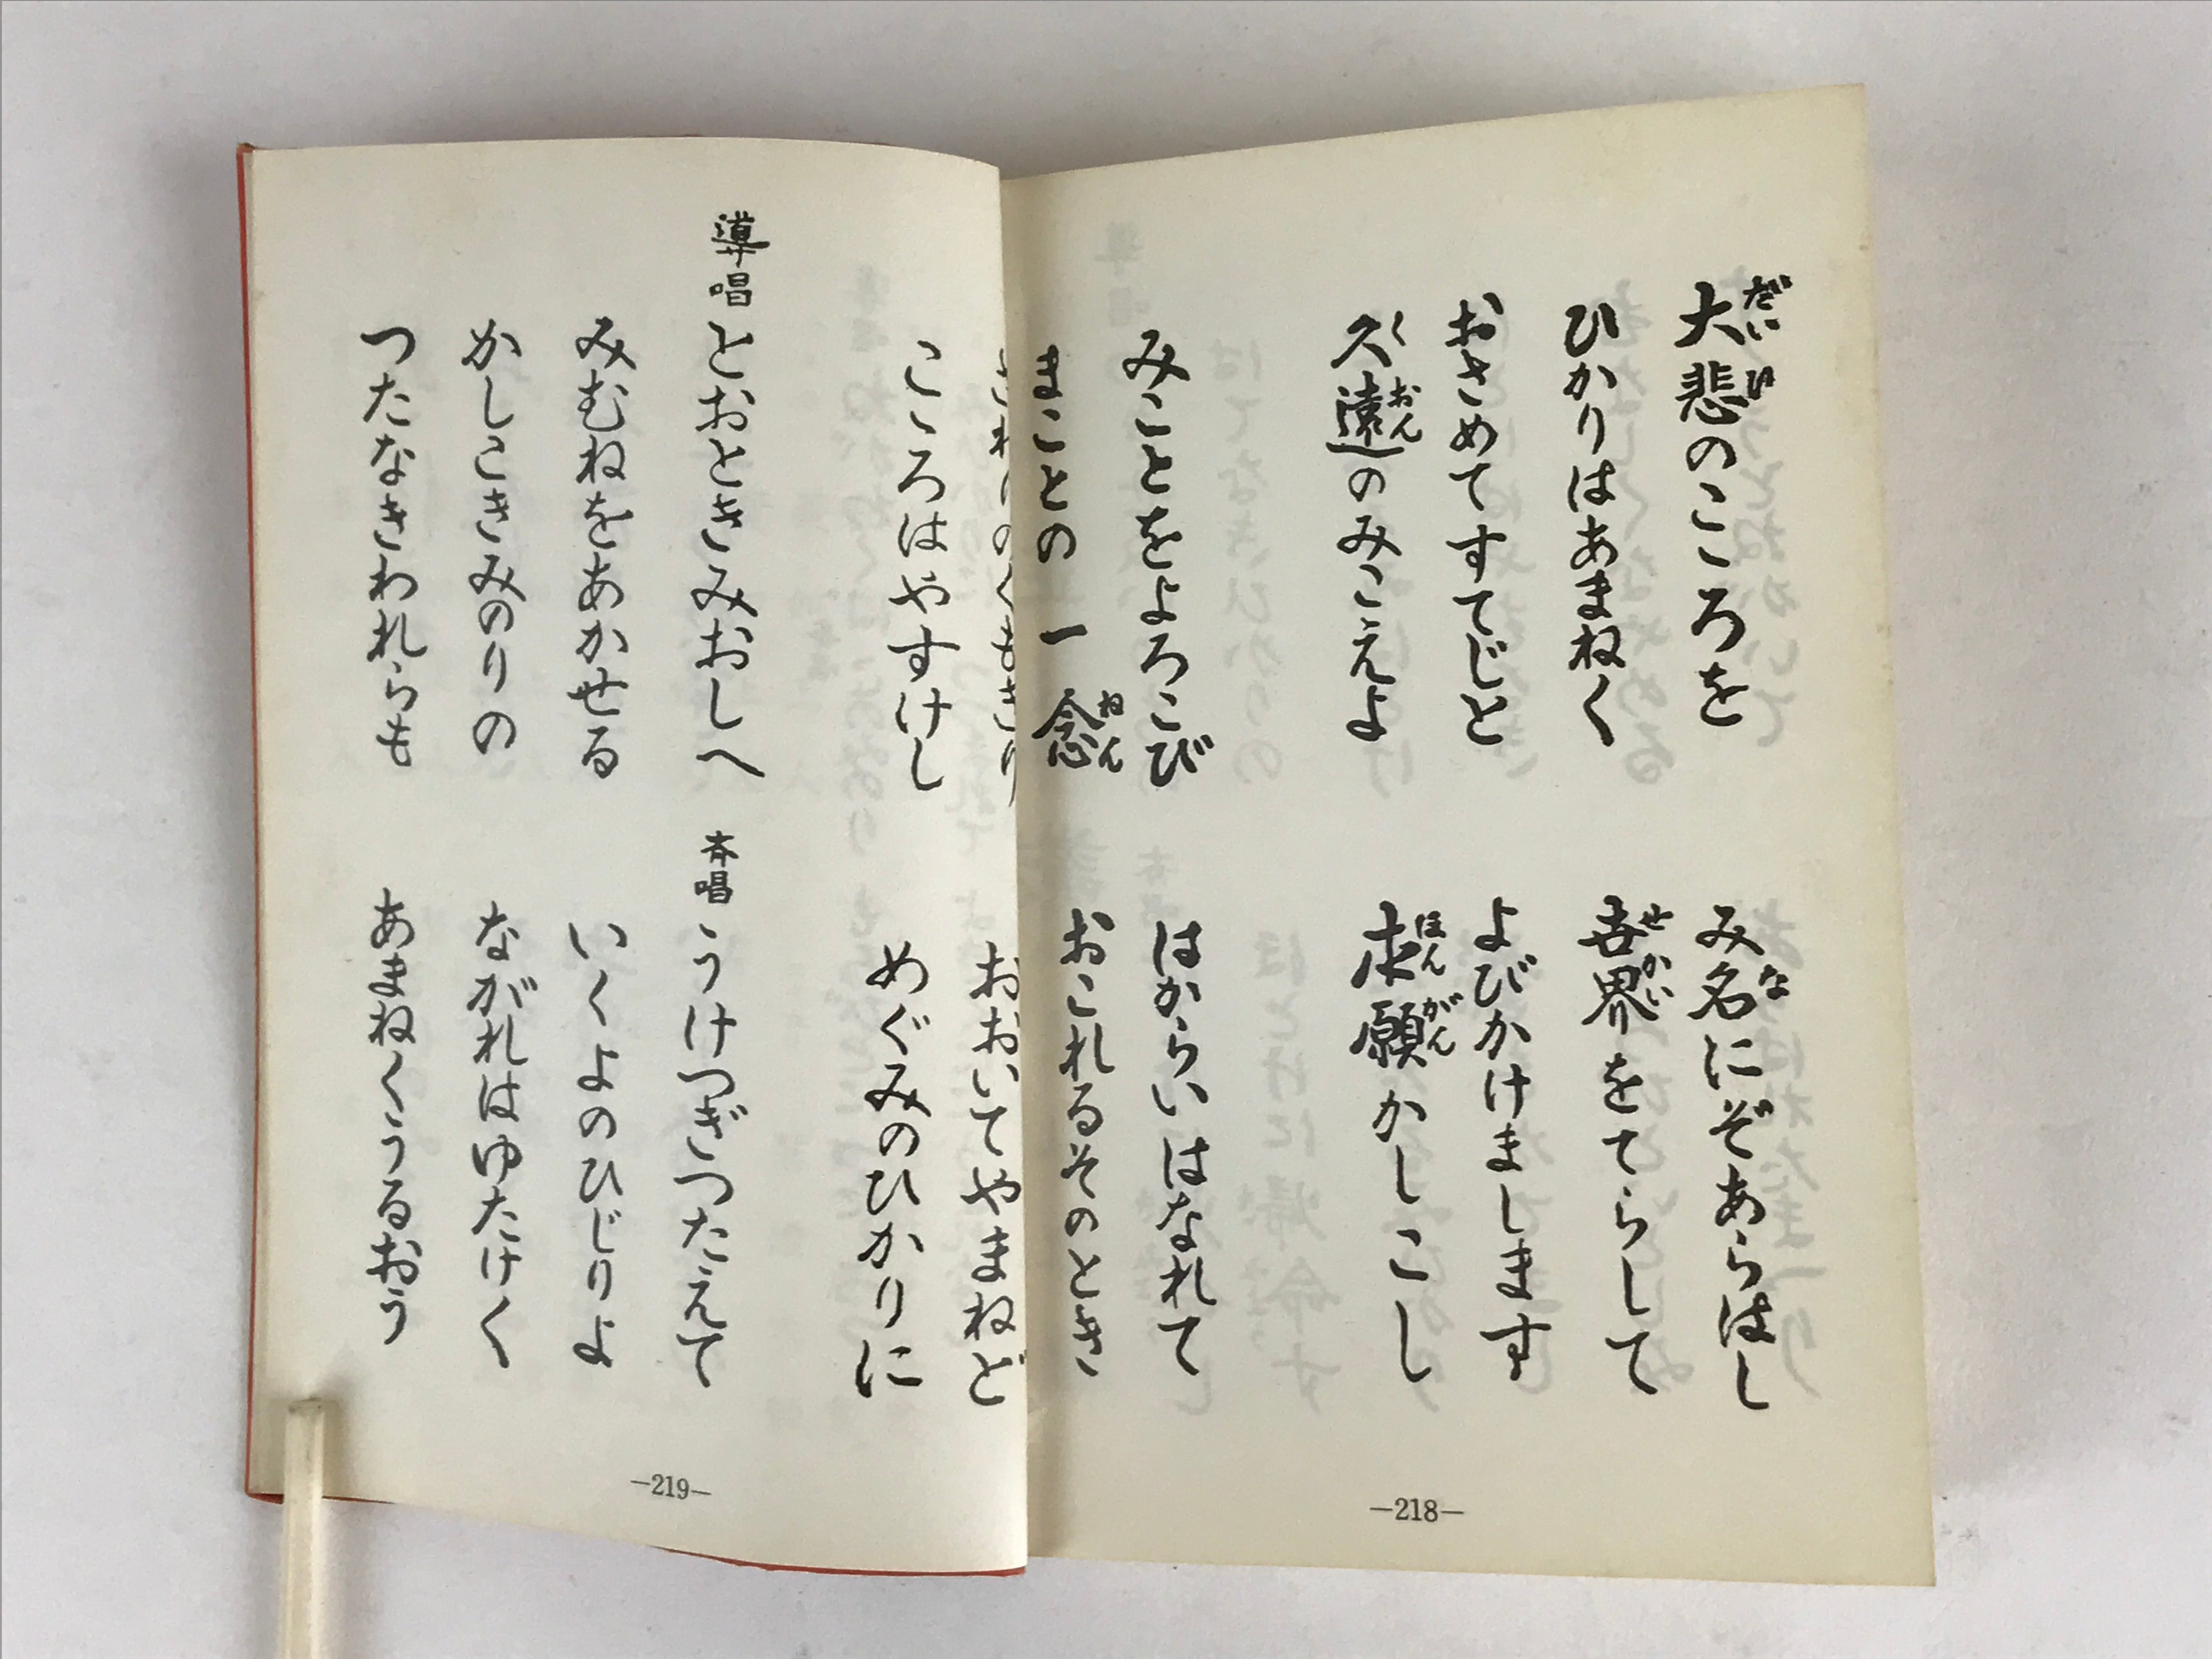 だいひ
大悲のこころを　み名にぞあらはし
な
ひかりはあまねく　世界をてらして
せかい
おさめてすてじと　よびかけまします
くおん
久遠のみこえよ　本願かしこし
ほんがん
みことをよろこび　はからいはなれて
まことの一念　おこれるそのとき
ねん
―218―
おおいてやまねど
こころはやすけし　めぐみのひかりに
導唱　とおときみおしへ　斉唱　うけつぎつたえて
みむねをあかせる　いくよのひじりよ
かしこきみのりの　ながれはゆたけく
つたなきわれらも　あまねくうるおう
―219―